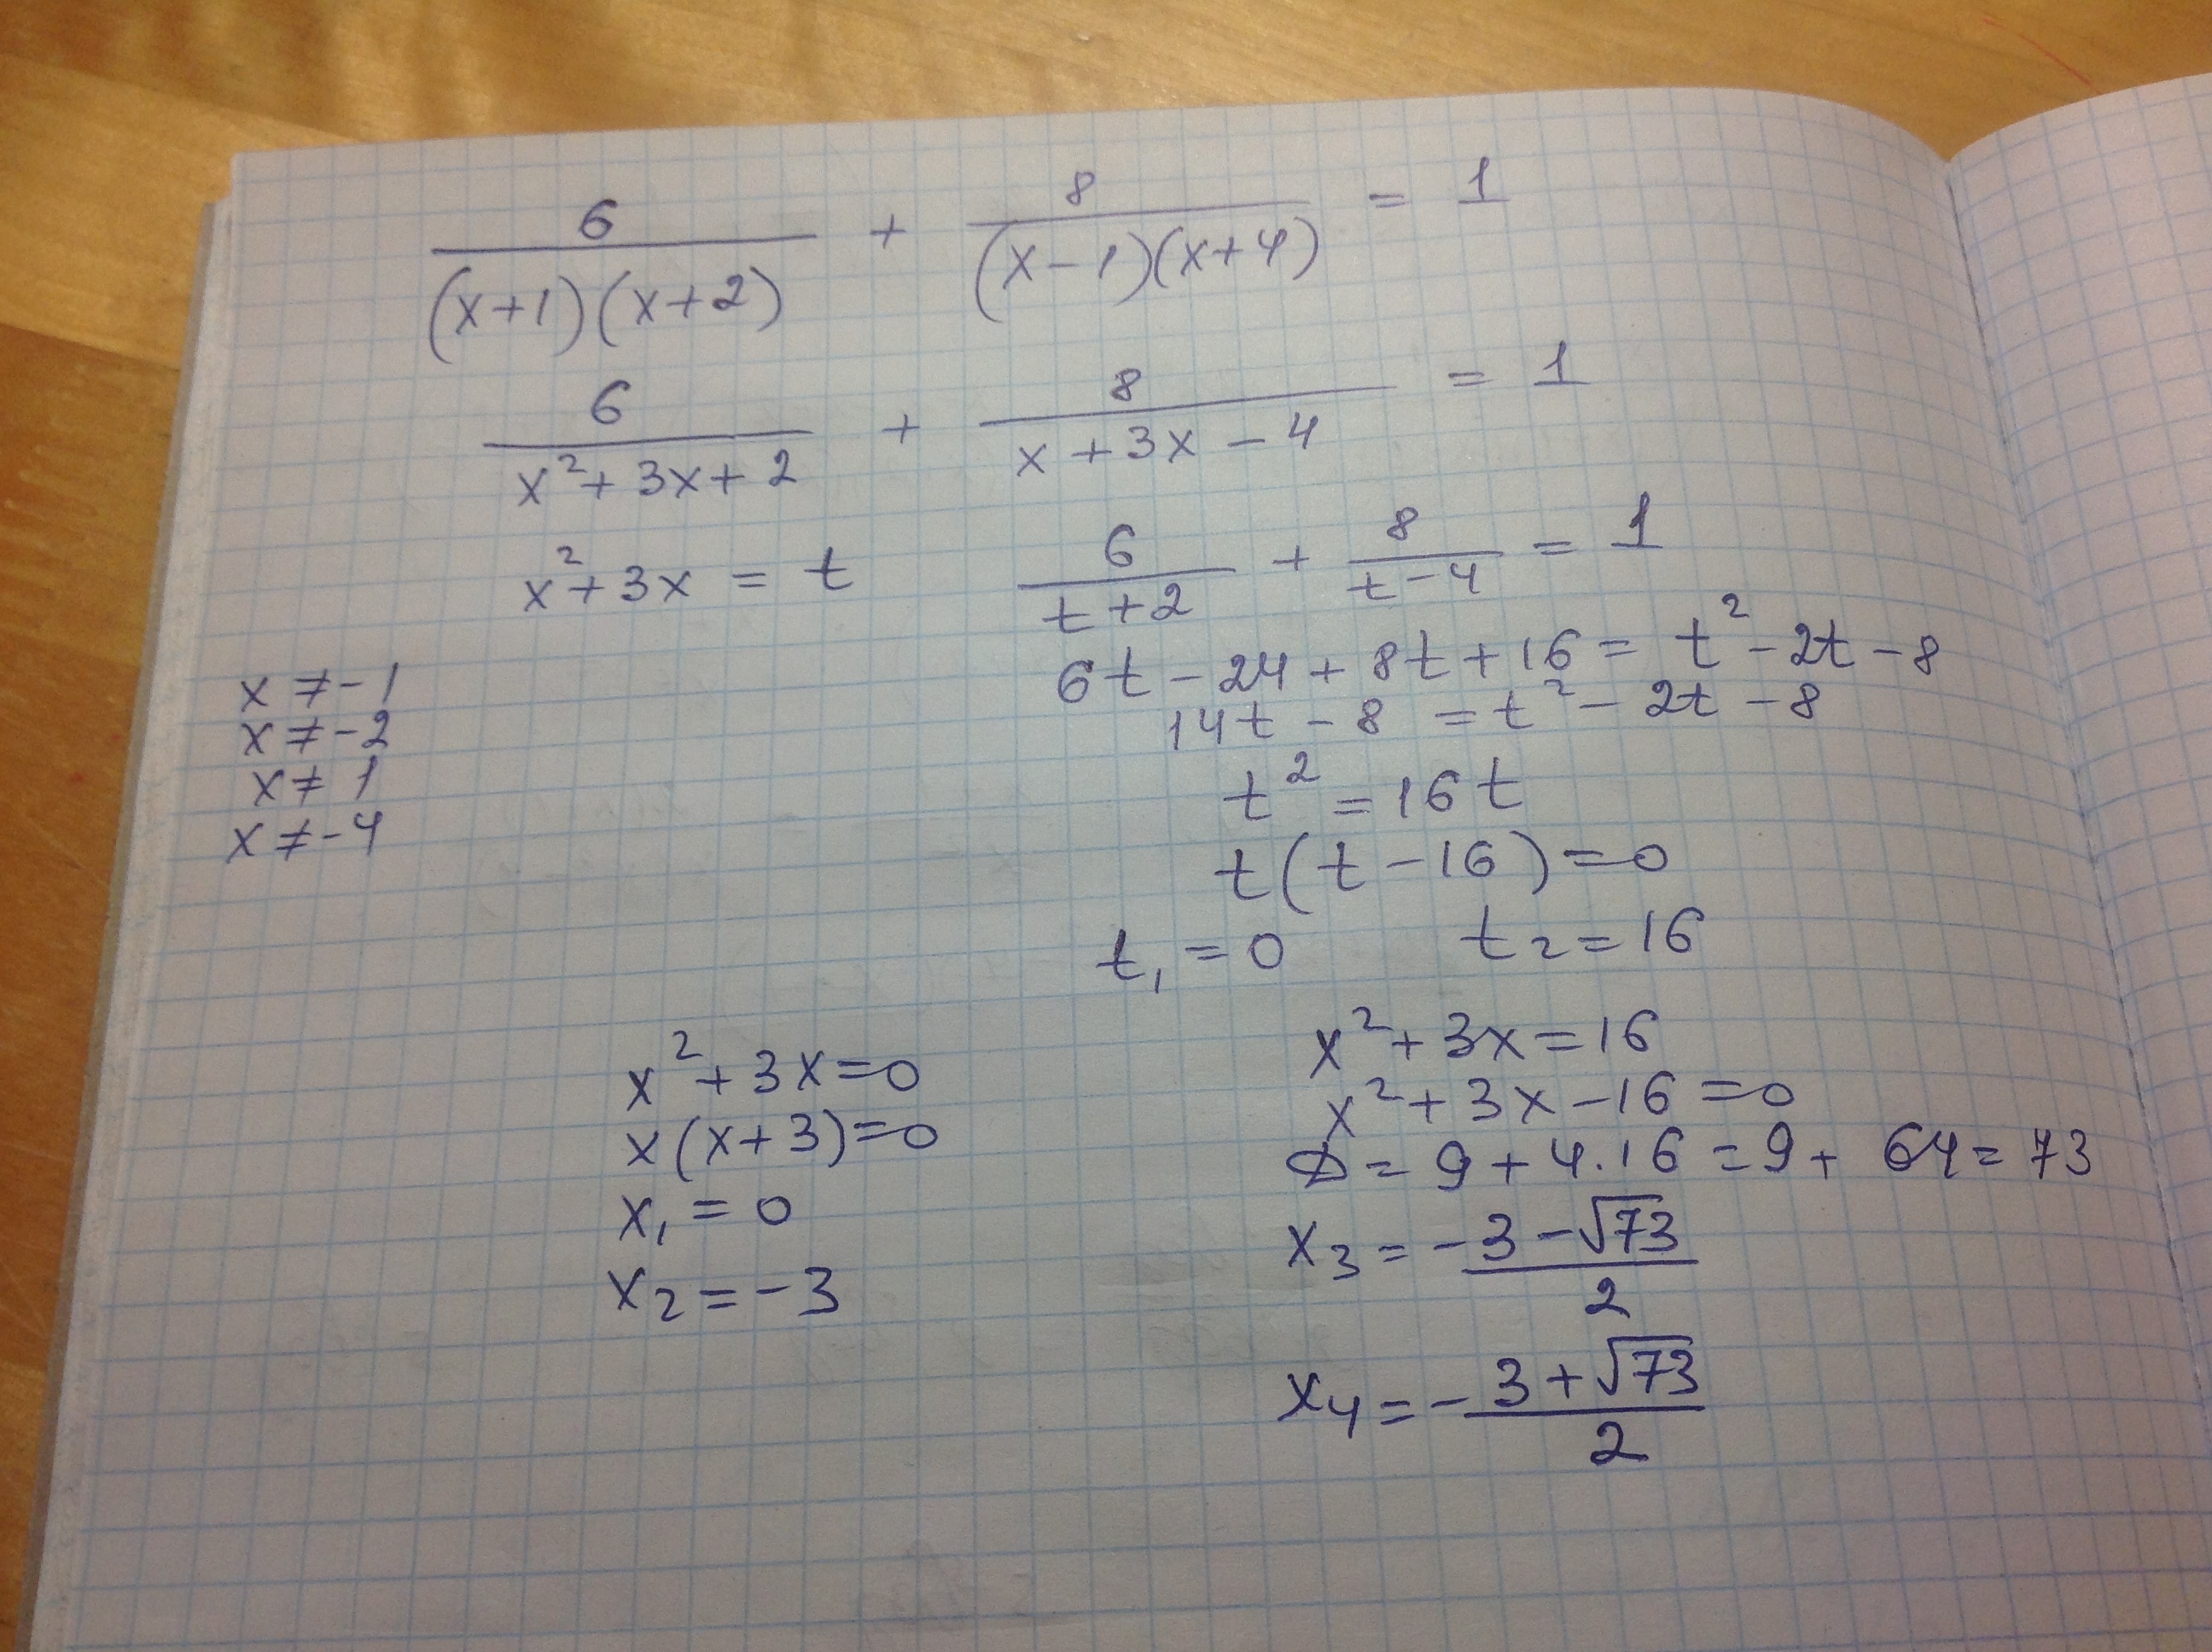 6/((x+1)(x+2)) + 8/((x-1)(x+4)) = 1
6/(x²+3x+2) + 8/(x+3x-4) = 1
x²+3x = t    6/(t+2) + 8/(t-4) = 1
6t-24+8t+16 = t²-2t-8
14t-8 = t²-2t-8
t² = 16t
t(t-16)=0
t₁=0    t₂=16
x ≠ -1
x ≠ -2
x ≠ 1
x ≠ -4
x²+3x=0
x(x+3)=0
x₁ = 0
x₂ = -3
x²+3x=16
x²+3x-16=0
D = 9+4·16 = 9+64 = 73
x₃ = (-3-√73)/2
x₄ = (-3+√73)/2